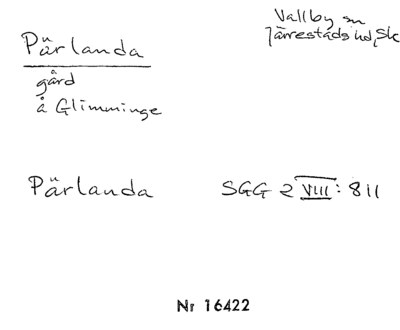 Pärlanda
Vallby sn
Järrestads hd, Sk
gård
å Glimminge
Pärlanda SGG 2 VIII: 811
Nr 16422